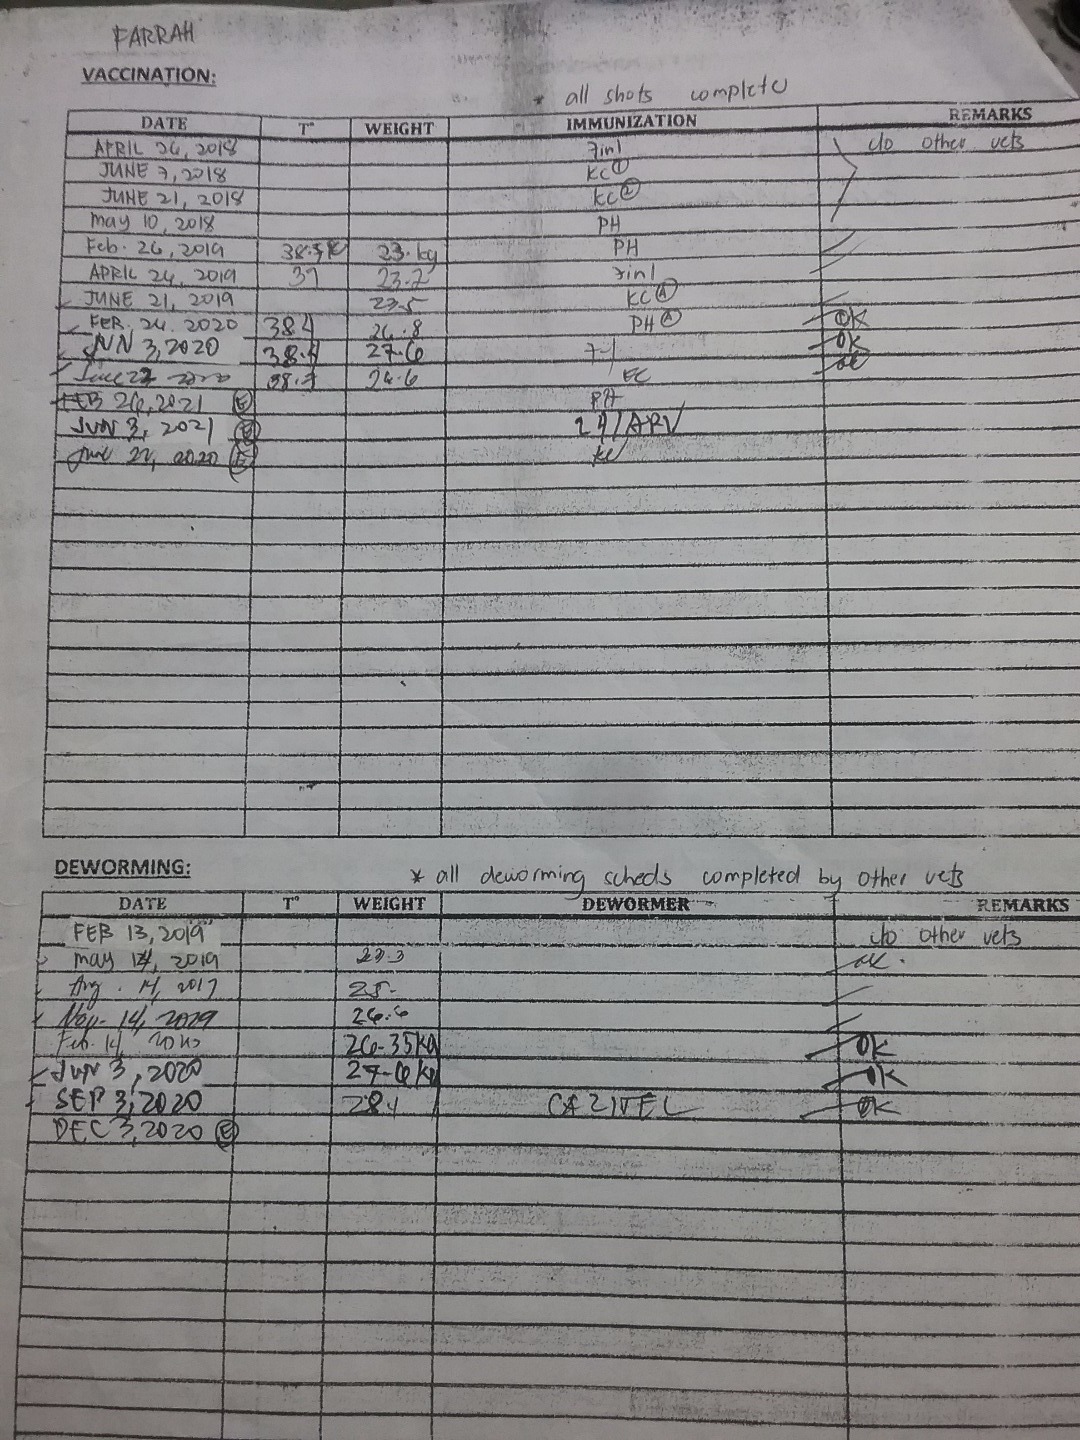 FARRAH
VACCINATION:
* all shots complete
DATE T° WEIGHT IMMUNIZATION REMARKS
APRIL 26, 2018 7in1 c/o other vets
JUNE 7, 2018 KC ①
JUNE 21, 2018 KC ②
may 10, 2018 PH
Feb. 26, 2019 38. 23. kg PH
APRIL 24, 2019 37 23.2 7in1
JUNE 21, 2019 23.5 KC Ⓐ
FEB. 24. 2020 38.4 26.8 PH Ⓐ OK
JUN 3, 2020 38.4 27.6 7-1 OK
June 22 2020 38.3 26.6 KC OK
FEB 26, 2021 Ⓔ PH
JUN 3, 2021 Ⓔ /ARV
June 22, 2020 Ⓔ KC
DEWORMING:
* all deworming scheds completed by other vets
DATE T° WEIGHT DEWORMER REMARKS
FEB 13, 2019 c/o other vets
may 14, 2019 23.3 ok.
Aug. 14, 2017 25.
Nov. 14, 2029 26.6
Feb. 14, 26-35kg OK
JUN 3, 2020 27-6 kg OK
SEP 3, 2020 28.1 CAZITEL OK
DEC 3, 2020 Ⓔ